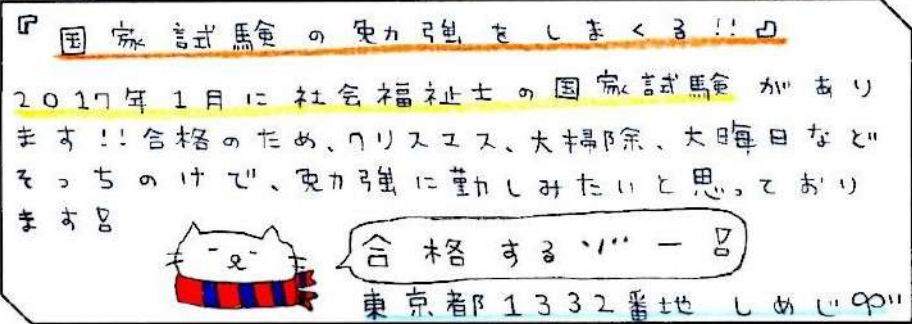 『国家試験の勉強をしまくる!!』
2017年1月に社会福祉士の国家試験があり
ます!!合格のため、クリスマス、大掃除、大晦日など
そっちのけで、勉強に勤しみたいと思っており
ます!!
合格するゾー!!
東京都1332番地 しめじ